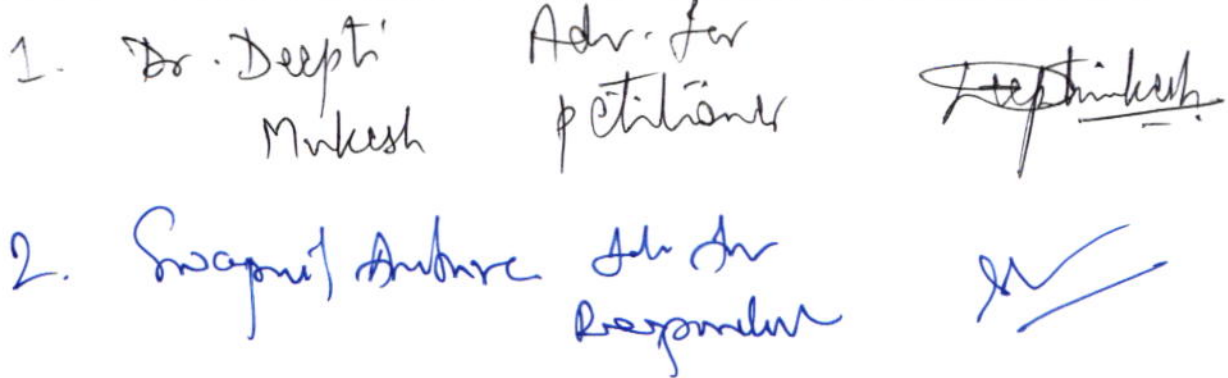 1. Dr. Deepti Adv. for
Mukesh petitioner Deeptimukesh
2. Swapnil Ambure Adv for
Respondent